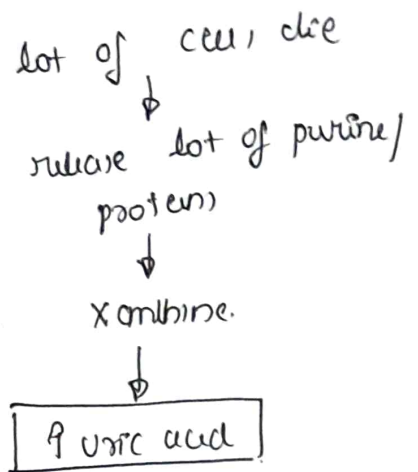 lot of cells die
↓
release lot of purine/
proteins
↓
Xanthine.
↓
↑ uric acid